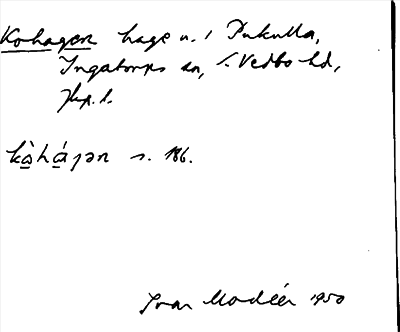 Kohagen hage u. 1 Pukulla,
Ingatorps sn, S. Vedbo hd,
Jkp. l.
kòhágən s. 186.
Ivar Modéer 1950